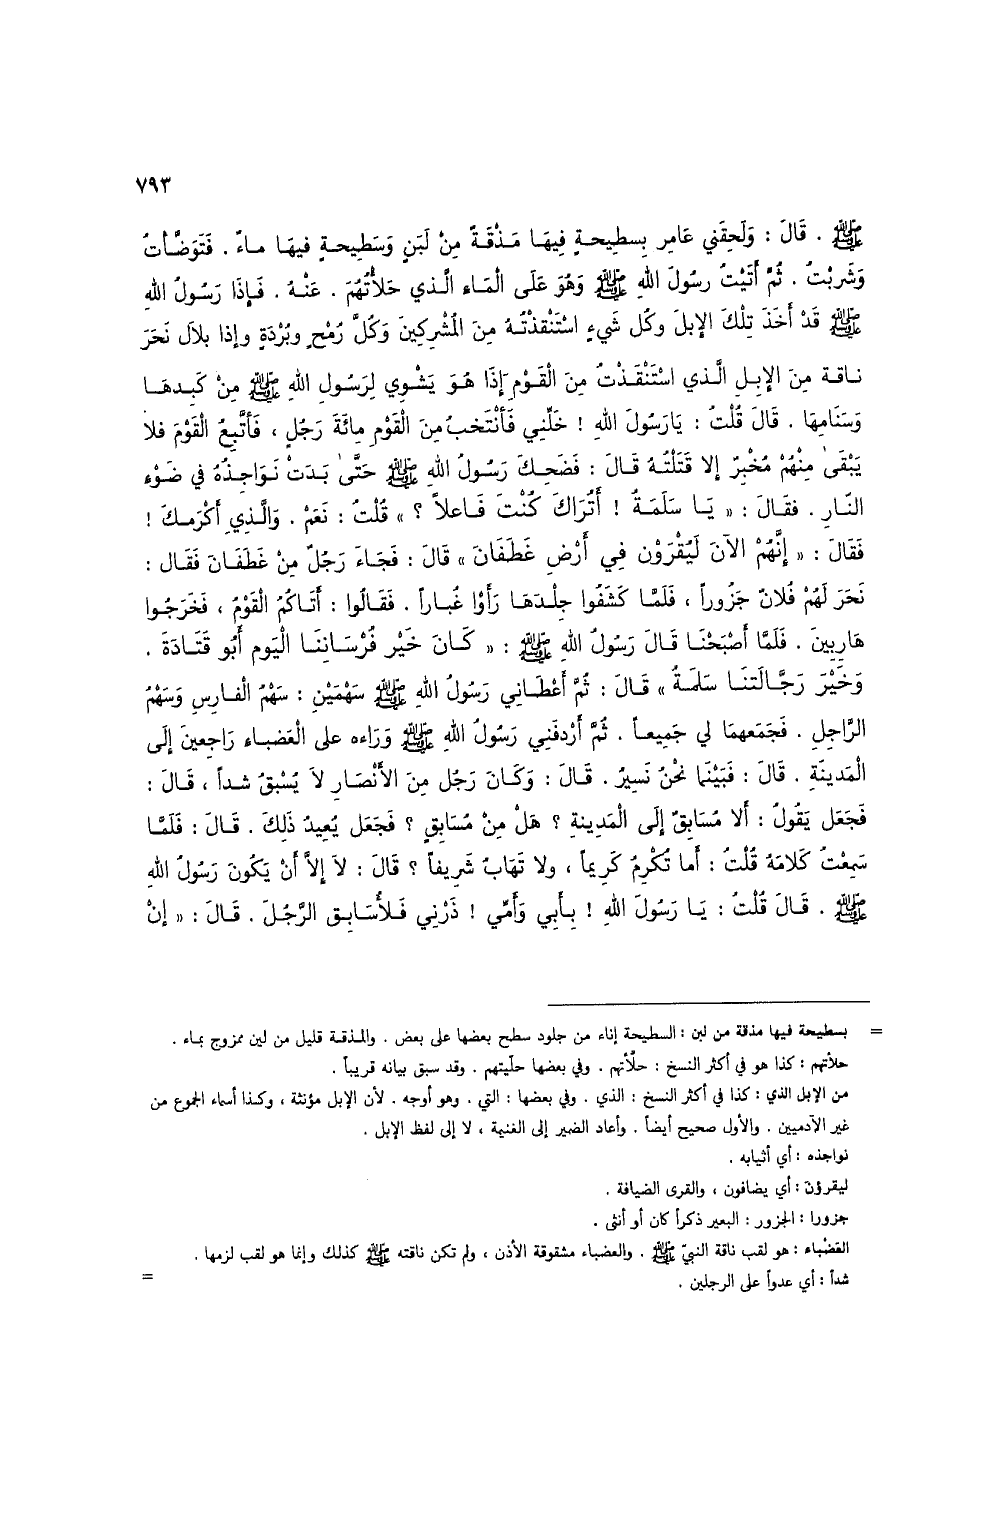 ٧٩٣
ﷺ . قَالَ : وَلَحِقَني عَامِر بِسطيحةٍ فِيهَا مَذْقَةً مِنْ لَبَنٍ وَسَطِيحةٍ فيهَا مـاءٌ . فَتَوَضَّأتُ
وَشَربْتُ . ثُمَّ أَتَيْتُ رسُولَ اللهِ ﷺ وَهُوَ عَلَى الْمَـاء الَّـذي حَلأْتُهُمَ . عَنْـهُ . فَـإذَا رَسُـولُ اللهِ
ﷺ قَدْ أخَذَ تِلْكَ الإبلَ وكُل شَيءٍ اسْتَنْقذْتُـهُ مِنَ المُشْركِينَ وَكُلَّ رُمْحٍ وبُرْدَةٍ وإذا بلاَل نَحَرَ
نـاقـة مِنَ الإبـلِ الَّـذي اسْتَنْقَـذْتُ مِنَ الْقَوْمِ إذَا هُـوَ يَشْوي لِرَسُـولِ اللهِ ﷺ مِنْ كَبِـدهَـا
وَسَنَامِهَا . قَالَ قُلْتُ : يَارَسُولَ اللهِ ! خَلّنِي فَأنْتَخبُ مِنَ الْقَوْمِ مِائَةَ رَجُلٍ ، فَأتَّبِعُ الْقَوْمَ فلا
يَبْقَى مِنْهُمْ مُخْبِرٌ إلا قَتَلْتُـهُ قَالَ : فَضَحِكَ رَسُولُ اللهِ ﷺ حَتَّى بَدَتْ نَوَاجذُهُ في ضَوْءِ
النَّـارِ . فقَـالَ : « يَـا سَلَمَـةُ ! أَتُرَاكَ كُنْتَ فَـاعلاً ؟ » قُلْتُ : نَعَمْ . وَالَّـذِي أَكْرَمـكَ !
فَقَالَ : « إنَّهُمْ الآنَ لَيُقْرَوْن فِي أَرْضِ غَطَفَانَ » قَالَ : فَجَاءَ رَجُلٌ مِنْ غَطَفَـانَ فَقَال :
نَحَرَ لَهُمْ فُلانٌ جَزُوراً ، فَلَمَّا كَشَفُوا جِلْدَهَا رَأوْا غُبـاراً . فَقَـالُوا : أَتَاكُمُ الْقَوْمُ ، فَخَرَجُـوا
هَـاربينَ . فَلَمَّا أصْبَحْنَـا قَـالَ رَسُولُ اللهِ ﷺ : « كَـانَ خَيْر فُرْسَـاننَـا الْيَوم أَبُو قَتَـادَةَ .
وَخَيْرَ رَجَّـالَتنَـا سَلَمَةُ » قَـالَ : ثُمَّ أعْطَـاني رَسُولُ اللهِ ﷺ سَهْمَيْنِ : سَهْمُ الْفـارِسِ وَسَهْمُ
الرَّاجلِ . فَجَمَعهمَا لي جَميعـاً . ثُمَّ أرْدفَني رَسُولُ اللهِ ﷺ وَرَاءه على الْعَضبـاء رَاجعينَ إلَى
الْمَدينَةِ . قَالَ : فَبَيْنَما نَحْنُ نَسيرُ . قَـالَ : وَكَـانَ رَجُل مِنَ الأَنْصَـارِ لاَ يُسْبقُ شداً ، قَـالَ :
فَجَعَل يَقُولُ : أَلا مُسَابقٌ إلَى الْمَدِينةِ ؟ هَلْ مِنْ مُسَابِقٍ ؟ فَجَعَل يُعيدُ ذَلِكَ . قَـالَ : فَلَمَّـا
سَمِعْتُ كَلامَهُ قُلْتُ : أَما تُكْرمُ كَريماً ، ولا تَهَابُ شَريفاً ؟ قَالَ : لاَ إلاَّ أَنْ يَكُونَ رَسُولُ اللهِ
ﷺ . قَـالَ قُلْتُ : يَـا رَسُولَ اللهِ ! بـأبِي وَأمِّي ! ذَرْنِي فَـلأُسَابِـق الرَّجُـلَ . قَـالَ : « إنْ
= بسطيحة فيها مذقة من لبن : السطيحة إناء من جلود سطح بعضها على بعض . والمـذقـة قليل من لبن ممزوج بماء .
حلأتهم : كذا هو في أكثر النسخ : حلّأتهم . وفي بعضها حلّيتهم . وقد سبق بيانه قريباً .
من الإبل الذي : كذا في أكثر النسخ : الذي . وفي بعضها : التي . وهو أوجه . لأن الإبل مؤنثة ، وكـذا أسماء الجموع من
غير الآدميين . والأول صحيح أيضاً . وأعاد الضمير إلى الغنيمة ، لا إلى لفظ الإبل .
نواجذه : أي أنيابه .
ليقرؤن : أي يضافون ، والقرى الضيافة .
جزورا : الجزور : البعير ذكراً كان أو أنثى .
العَضْباء : هو لقب ناقة النبيّ ﷺ . والعضباء مشقوقة الأذن ، ولم تكن ناقته ﷺ كذلك وإنما هو لقب لزمها .
شداً : أي عدواً على الرجلين . =